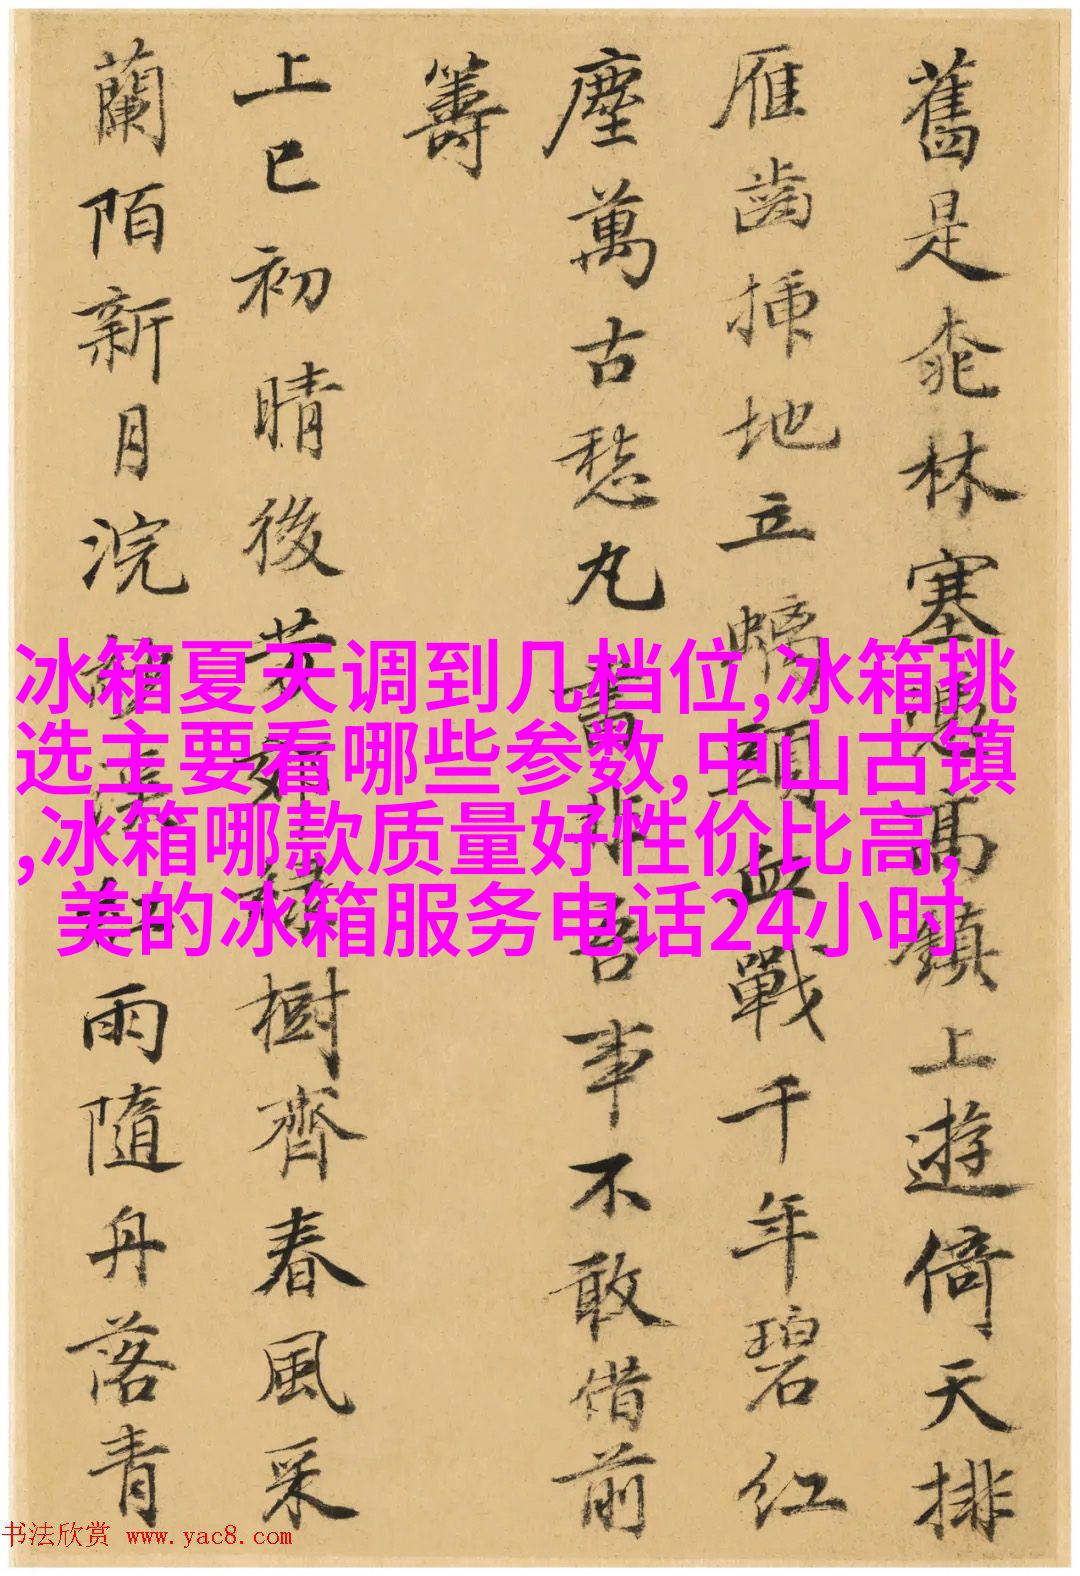 舊是桃林塞高鎮上遊倚天排
雁齒插地立螭頭血戰千年碧紅
塵萬古愁丸書非吾事不敢借前
籌
上巳初晴後芳郊綠樹齊春風采
蘭陌新月浣雨隨舟落青
冰箱夏天调到几档位,冰箱挑
选主要看哪些参数,中山古镇
,冰箱哪款质量好性价比高,
美的冰箱服务电话24小时
书法欣赏 www.yac8.com